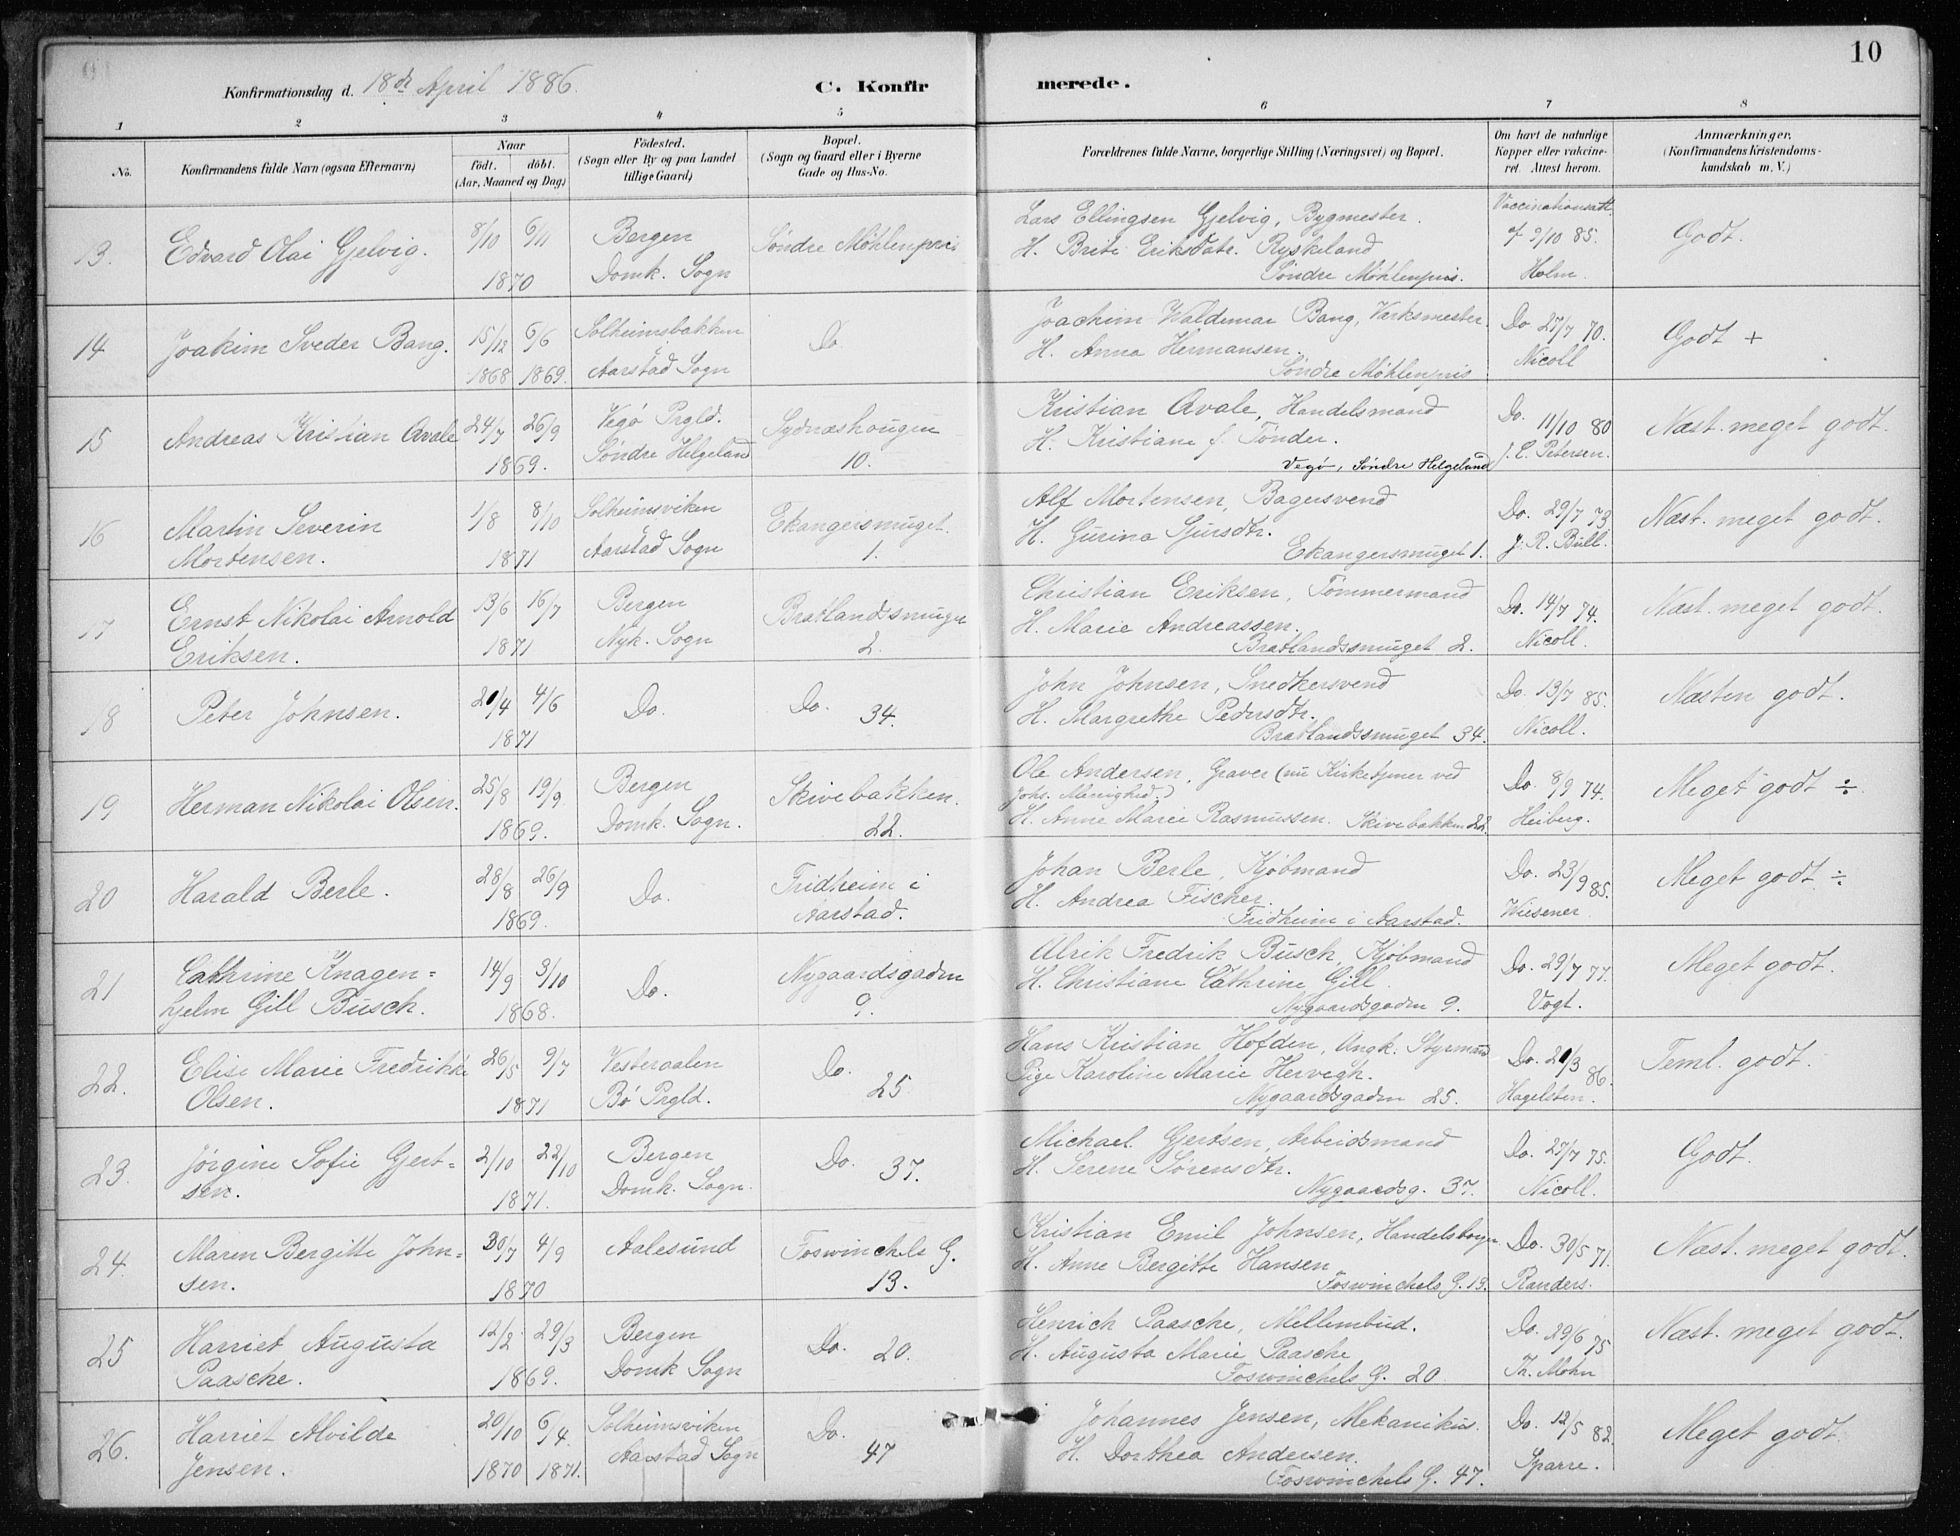 10
Konfirmationsdag d. 18de April 1886.
C. Konfirmerede.
1 2 3 4 5 6 7 8
No.
Konfirmandens fulde Navn (ogsaa Efternavn)
Naar
födt. döbt.
(Aar, Maaned og Dag)
Födested.
(Sogn eller By og paa Landet
tillige Gaard)
Bopæl.
(Sogn og Gaard eller i Byerne
Gade og Hus-No.
Forældrenes fulde Navne, borgerlige Stilling (Næringsvei) og Bopæl.
Om havt de naturlige
Kopper eller vakcine-
ret. Attest herom.
Anmærkninger,
(Konfirmandens Kristendoms-
kundskab m. V.)
13. Edvard Olai Gjelvig. 8/10 6/11 1870
Bergen
Domk. Sogn
Søndre Möhlenpris
Lars Ellingsen Gjelvig, Bygmester.
H. Brite Eriksdatr. Ryskeland
Søndre Møhlenpris.
Vaccinationsatt.
9/10 85.
Holm.
Godt.
14 Joakim Sveder Bang. 15/12 1868 6/6 1869.
Solheimsbakken
Aarstad Sogn
Do.
Joachim Waldemar Bang, Verksmester.
H. Anna Hermansen.
Søndre Möhlenpris
Do 27/7 70.
Nicoll
Godt +
15 Andreas Kristian Avale 24/7 26/9 1869.
Vegø Prgld.
Søndre Helgeland
Sydnæshougen
10.
Kristian Avale, Handelsmand
H. Kristiane f. Tønder.
Vegø, Søndre Helgeland
Do. 11/10 80
J. C. Petersen.
Næst. meget godt.
16 Martin Severin
Mortensen. 1/8 8/10 1871
Solheimsviken
Aarstad Sogn
Ekangersmuget.
1.
Alf Mortensen, Bagersvend
H. Gurina Sjursdtr.
Ekangersmuget 1.
Do. 29/7 73.
J. R. Bull.
Næst. meget godt.
17 Ernst Nikolai Arnold
Eriksen. 13/6 16/7 1871
Bergen
Nyk. Sogn
Bratlandsmuget
2.
Christian Eriksen, Tömmermand
H. Marie Andreassen.
Bratlandssmuget 2.
Do. 14/7 74.
Nicoll.
Næst. meget godt.
18 Peter Johnsen. 21/4 4/6 1871
Do.
Do. 34.
John Johnsen, Snedkersvend
H. Margrethe Pedersdtr.
Bratlandssmuget 34.
Do. 13/7 85.
Nicoll.
Næsten godt.
19 Herman Nikolai Olsen. 25/8 19/9. 1869.
Bergen
Domk. Sogn.
Skivebakken.
22.
Ole Andersen, Graver (nu Kirketjener ved
Johs. Menighed.)
H. Anne Marie Rasmussen. Skivebakken 22.
Do. 8/9 74.
Heiberg.
Meget godt ÷
20 Harald Berle. 28/8 26/9 1869.
Do.
Fridheim i
Aarstad.
Johan Berle, Kjöbmand
H. Andrea Fischer.
Fridheim i Aarstad.
Do. 23/9 85.
Wiesener
Meget godt ÷
21 Cathrine Knagen=
hjelm Gill Busch. 14/9 3/10 1868.
Do.
Nygaardsgaden
9.
Ulrik Fredrik Busch, Kjöbmand
H. Christiane Cathrine Gill.
Nygaardsgaden 9.
Do. 29/7 77.
Vogt.
Meget godt.
22. Elise Marie Fredrikke
Olsen. 26/5 9/7 1871
Vesteraalen
Bö Prgld.
Do.
25
Hans Kristian Hofden, Angk. Styrmand
Pige Karoline Marie Hervegh.
Nygaardsgaden 25.
Do. 21/3 86.
Hagelsten.
Teml. godt.
23. Jørgine Sofie Gjert=
sen. 2/10 22/10 1871.
Bergen
Domk. Sogn.
Do. 37.
Michael Gjertsen, Arbeidsmand
H. Serene Sørensdtr.
Nygaardsg. 37.
Do. 27/7 75.
Nicoll.
Godt.
24. Maren Bergitte John=
sen. 30/7 4/9 1870
Aalesund
Foswinchels G.
13.
Kristian Emil Johnsen, Handelsborger
H. Anne Bergitte Hansen
Foswinchels G. 13.
Do. 30/5 71.
Randers.
Næst. meget godt.
25 Harriet Augusta
Paasche. 12/2. 29/3 1869.
Bergen
Domk Sogn
Do. 20.
Henrich Paasche, Mellembud.
H. Augusta Marie Paasche
Foswinchels G. 20
Do. 29/6 75
Th. Mohn
Næst. meget godt.
26. Harriet Alvilde
Jensen. 20/10 1870 6/4. 1871.
Solheimsviken
Aarstad Sogn
Do.
47
Johannes Jensen, Mekanikus.
H. Dorthea Andersen.
Foswinchels G. 47.
Do. 12/5 82.
Sparre.
Meget godt.